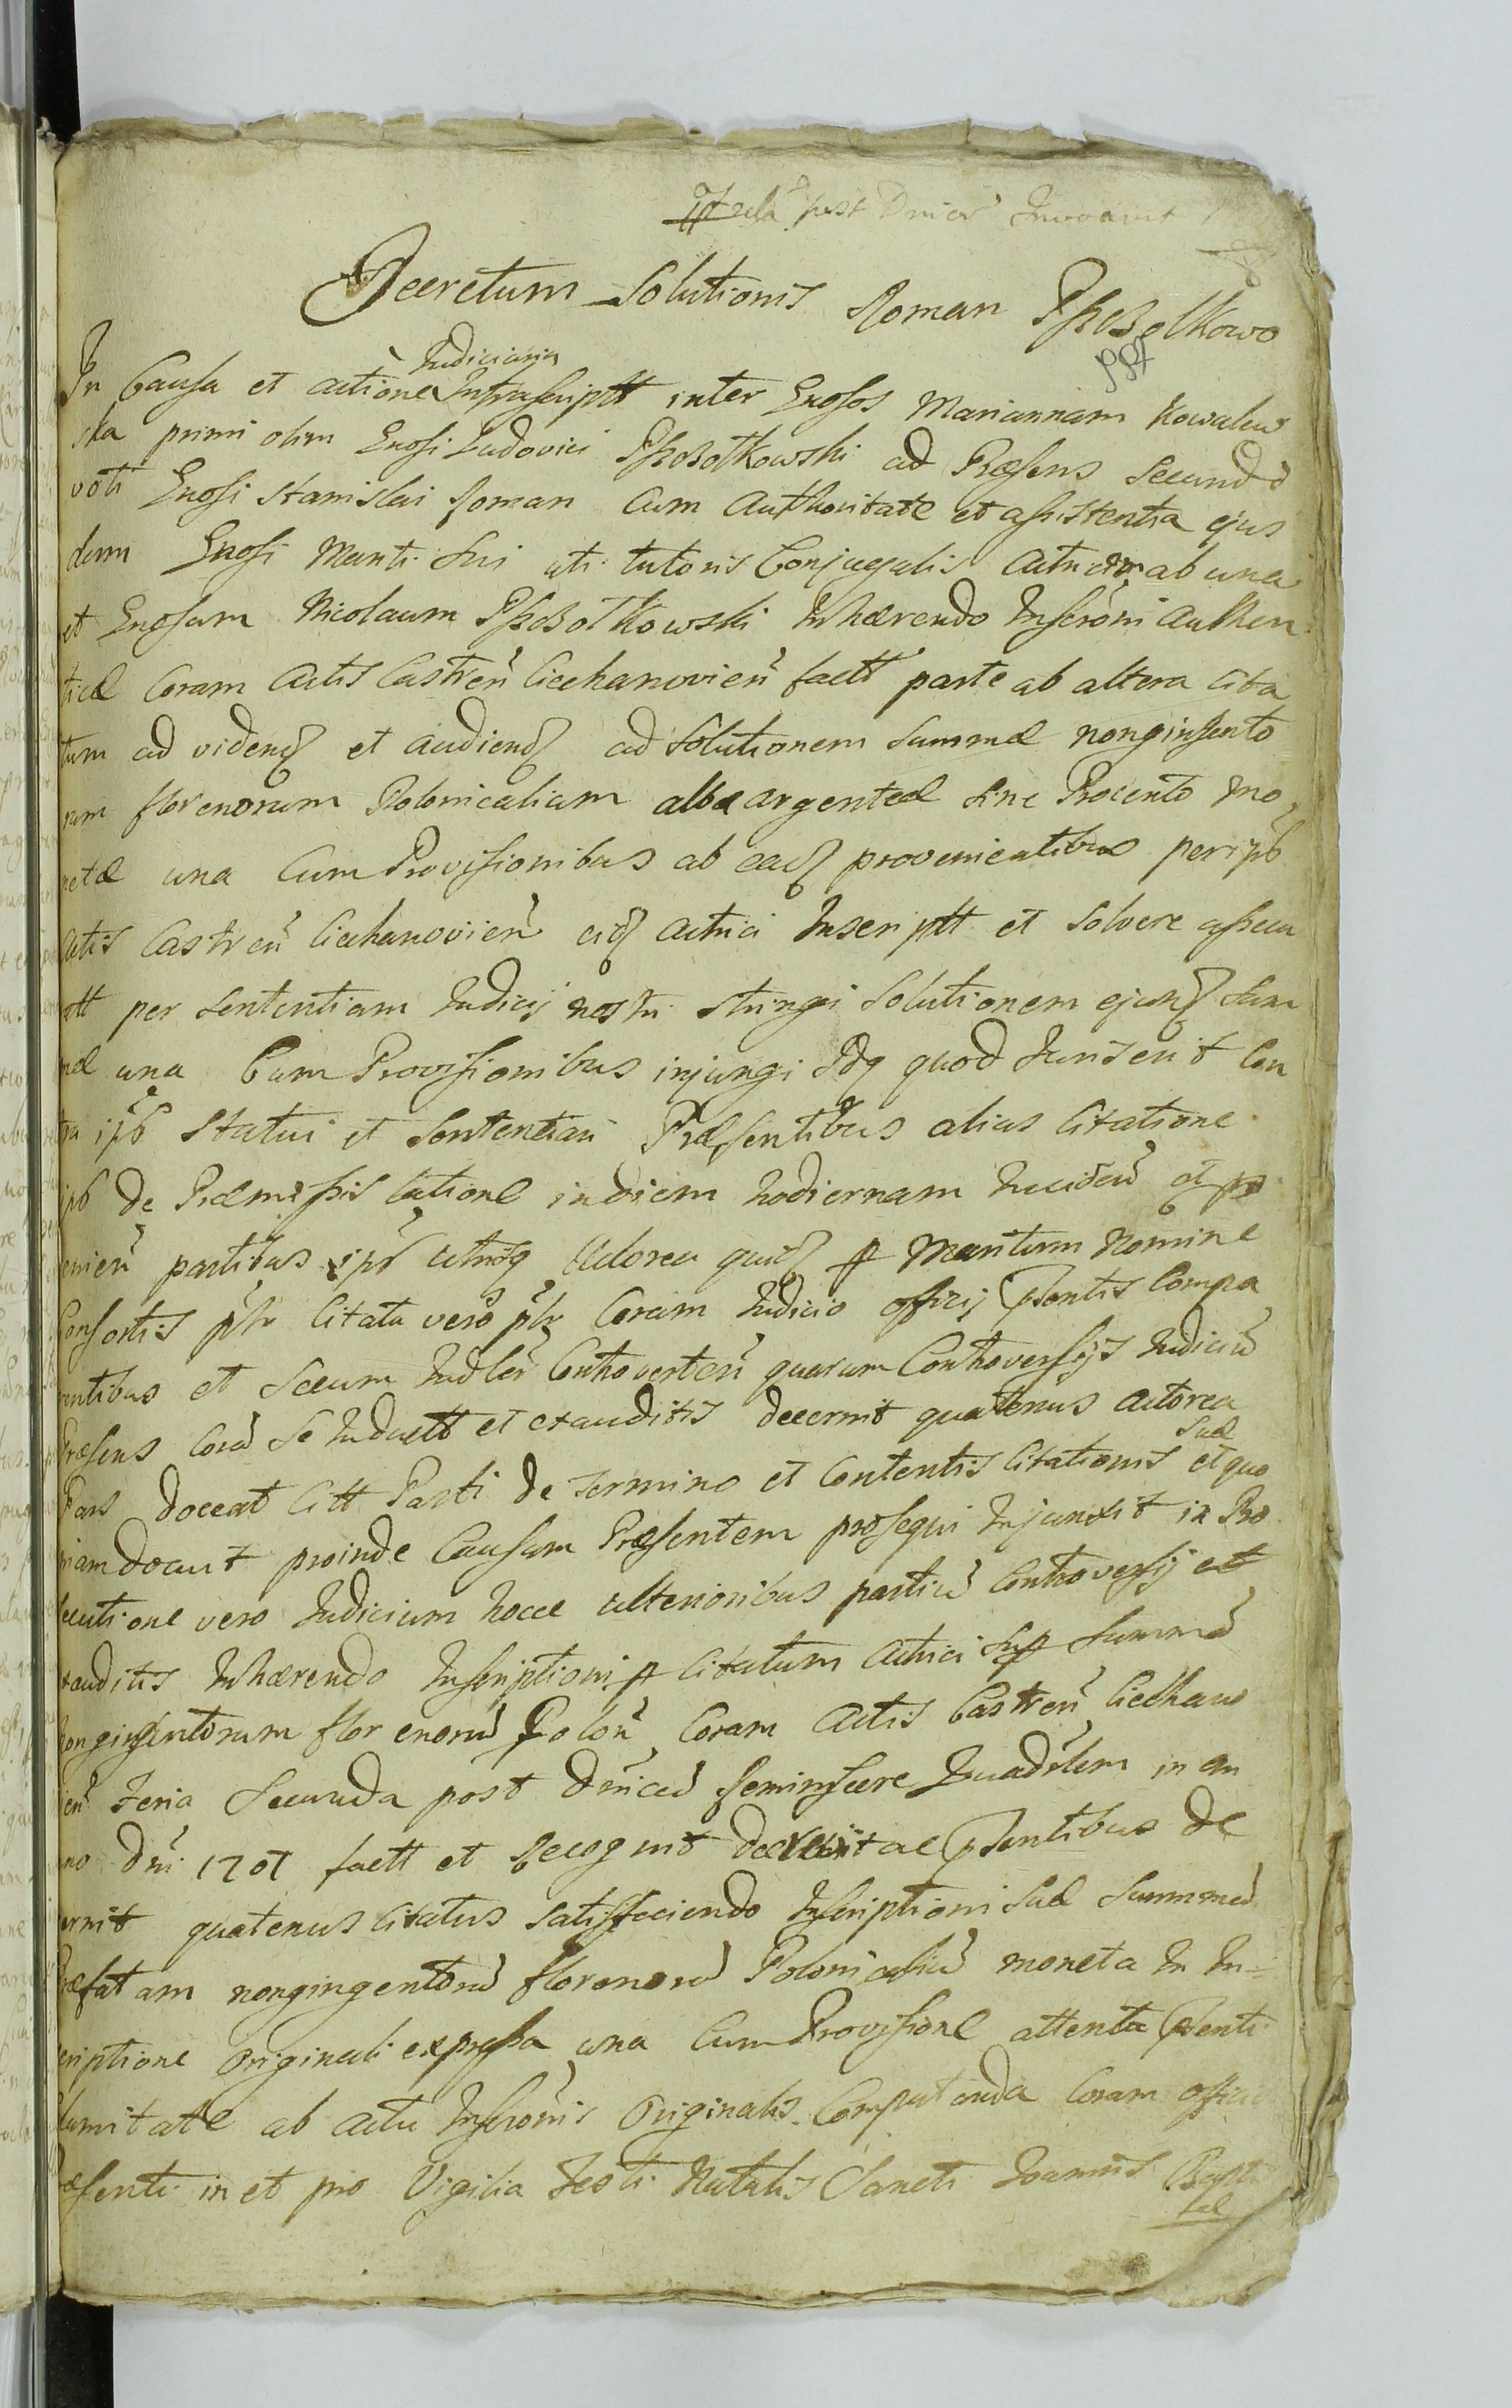 post Dnicã Invocavit
Decretum Solutionis Roman PszczolKows
ppt
Judiciaria
In Causa et actione Infrascriptt inter Gnosos Mariannam Kowalew
ska primi olim Gnosi Ludovici PszczolKowski ad Præsens Secundi
voti Gnosi Stanislai Roman cum Authoritate et assistentia ejus
dem Gnosi Mariti Sui uti tutoris Conjugalis ab una
et Gnosum Nicolaum PszczolKowski Inhærendo Inscrõni Authen
ticæ Coram Actis Castreñ Ciechanovieñ factt parte ab altera Cita
tum ad videnđ et audienđ ad Solutionem Summæ nonginsento
rum florenorum Polonicalium albæ argenteæ sine Procento mo
netæ una Cum Provisionibus ab eađ provenientibus per ipß
Actis Castreñ Ciechanovieñ eiđ Actrici Inscriptt et Solvere assecu
ratt per Sententiam Judicij nostri stringi Solutionem ejusđ Sum
mæ una Cum Provisionibus injungi Idq quod Juris erit Con
tra ipß Statui et Sententiari Præsentibus alias Citatione
ipß de Præmissis latione in diem hodiernam Incideñ et
venieñ partibus ipß utrisq Actorea quiđ p Maritum Nomine
Consortis pltr Citata vero pltr Coram Judicio officij Psentis Compa
rentibus et Secum Judlr Controverteñ quarum Controversijs Judiciũ
Præsens Corã Se Inductt et exauditis decernit quatenus Actorea
Pars doceat Citt Parti de termino et Contentis Citationis Suæ et quo
niam docuit proinde Causam Præsentem prosequi Injunxit in Pro
secutione vero Judicium hocce ulterioribus partiũ Controversij et
exauditis Inhærendo Inscriptioni p Citatum Actrici Sup Summã
nongingentorum florenorũ Poloñ Coram Actis Castreñ Ciechano
vieñ Feria Secunda post Dnicã Reminiscere Quadrlem in an
no Dñi 1701 factt et Recognit ac Psentibus de
cernit quatenus Citatus Satisfaciendo Inscriptioni Suæ Summã
Præfatam nongingentorũ florenorũ Polonicaliũ moneta In In-
scriptione Originali expressa una Cum Provisione attenta Psenti
ab Actu Inscrõnis Originalis Computanda Coram officio
Præsenti in et pro Vigilia Festi Natalis Sancti Joannis Baptis
tæ